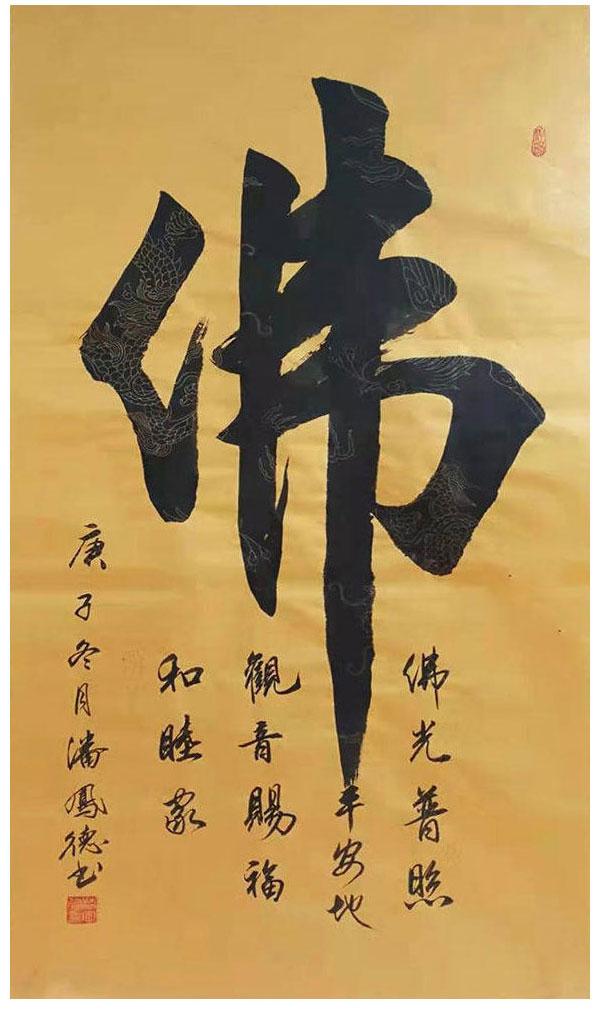 佛
佛光普照
平安地
觀音賜福
和睦家
庚子冬月潘鳳德书